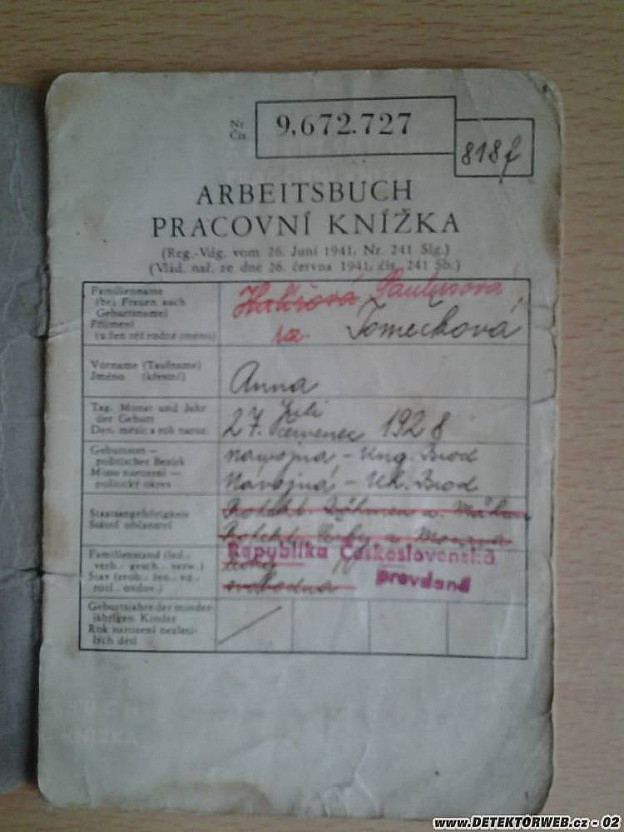 Nr.
Čís.
9,672.727
818f
ARBEITSBUCH
PRACOVNÍ KNÍŽKA
(Reg.-Vdg. vom 26. Juni 1941, Nr. 241 Slg.)
(Vlád. nař. ze dne 26. června 1941, čís. 241 Sb.)
Familienname
(bei Frauen auch
Geburtsname)
Příjmení
(u žen též rodné jméno)
roz. Tomečková
Vorname (Taufname)
Jméno (křestní)
Anna
Tag, Monat und Jahr
der Geburt
Den, měsíc a rok naroz.
Juli
27. červenec 1928
Geburtsort —
politischer Bezirk
Místo narození —
politický okres
Nawojna - Ung. Brod
Návojná - Uh. Brod
Staatsangehörigkeit
Státní občanství
Protekt. Böhmen u. Mähren
Protekt. Čechy a Morava
Republika Československá
Familienstand (led.,
verh., gesch., verw.)
Stav (svob., žen., vd.,
rozl., ovdov.)
ledig
svobodná
provdaná
Geburtsjahre der minder-
jährigen Kinder
Rok narození nezleti-
lých dětí
KNÍŽKA
www.DETEKTORWEB.cz - 02